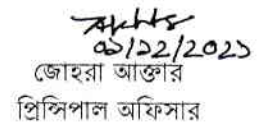 ০১/১২/২০২১
জোহরা আক্তার
প্রিন্সিপাল অফিসার